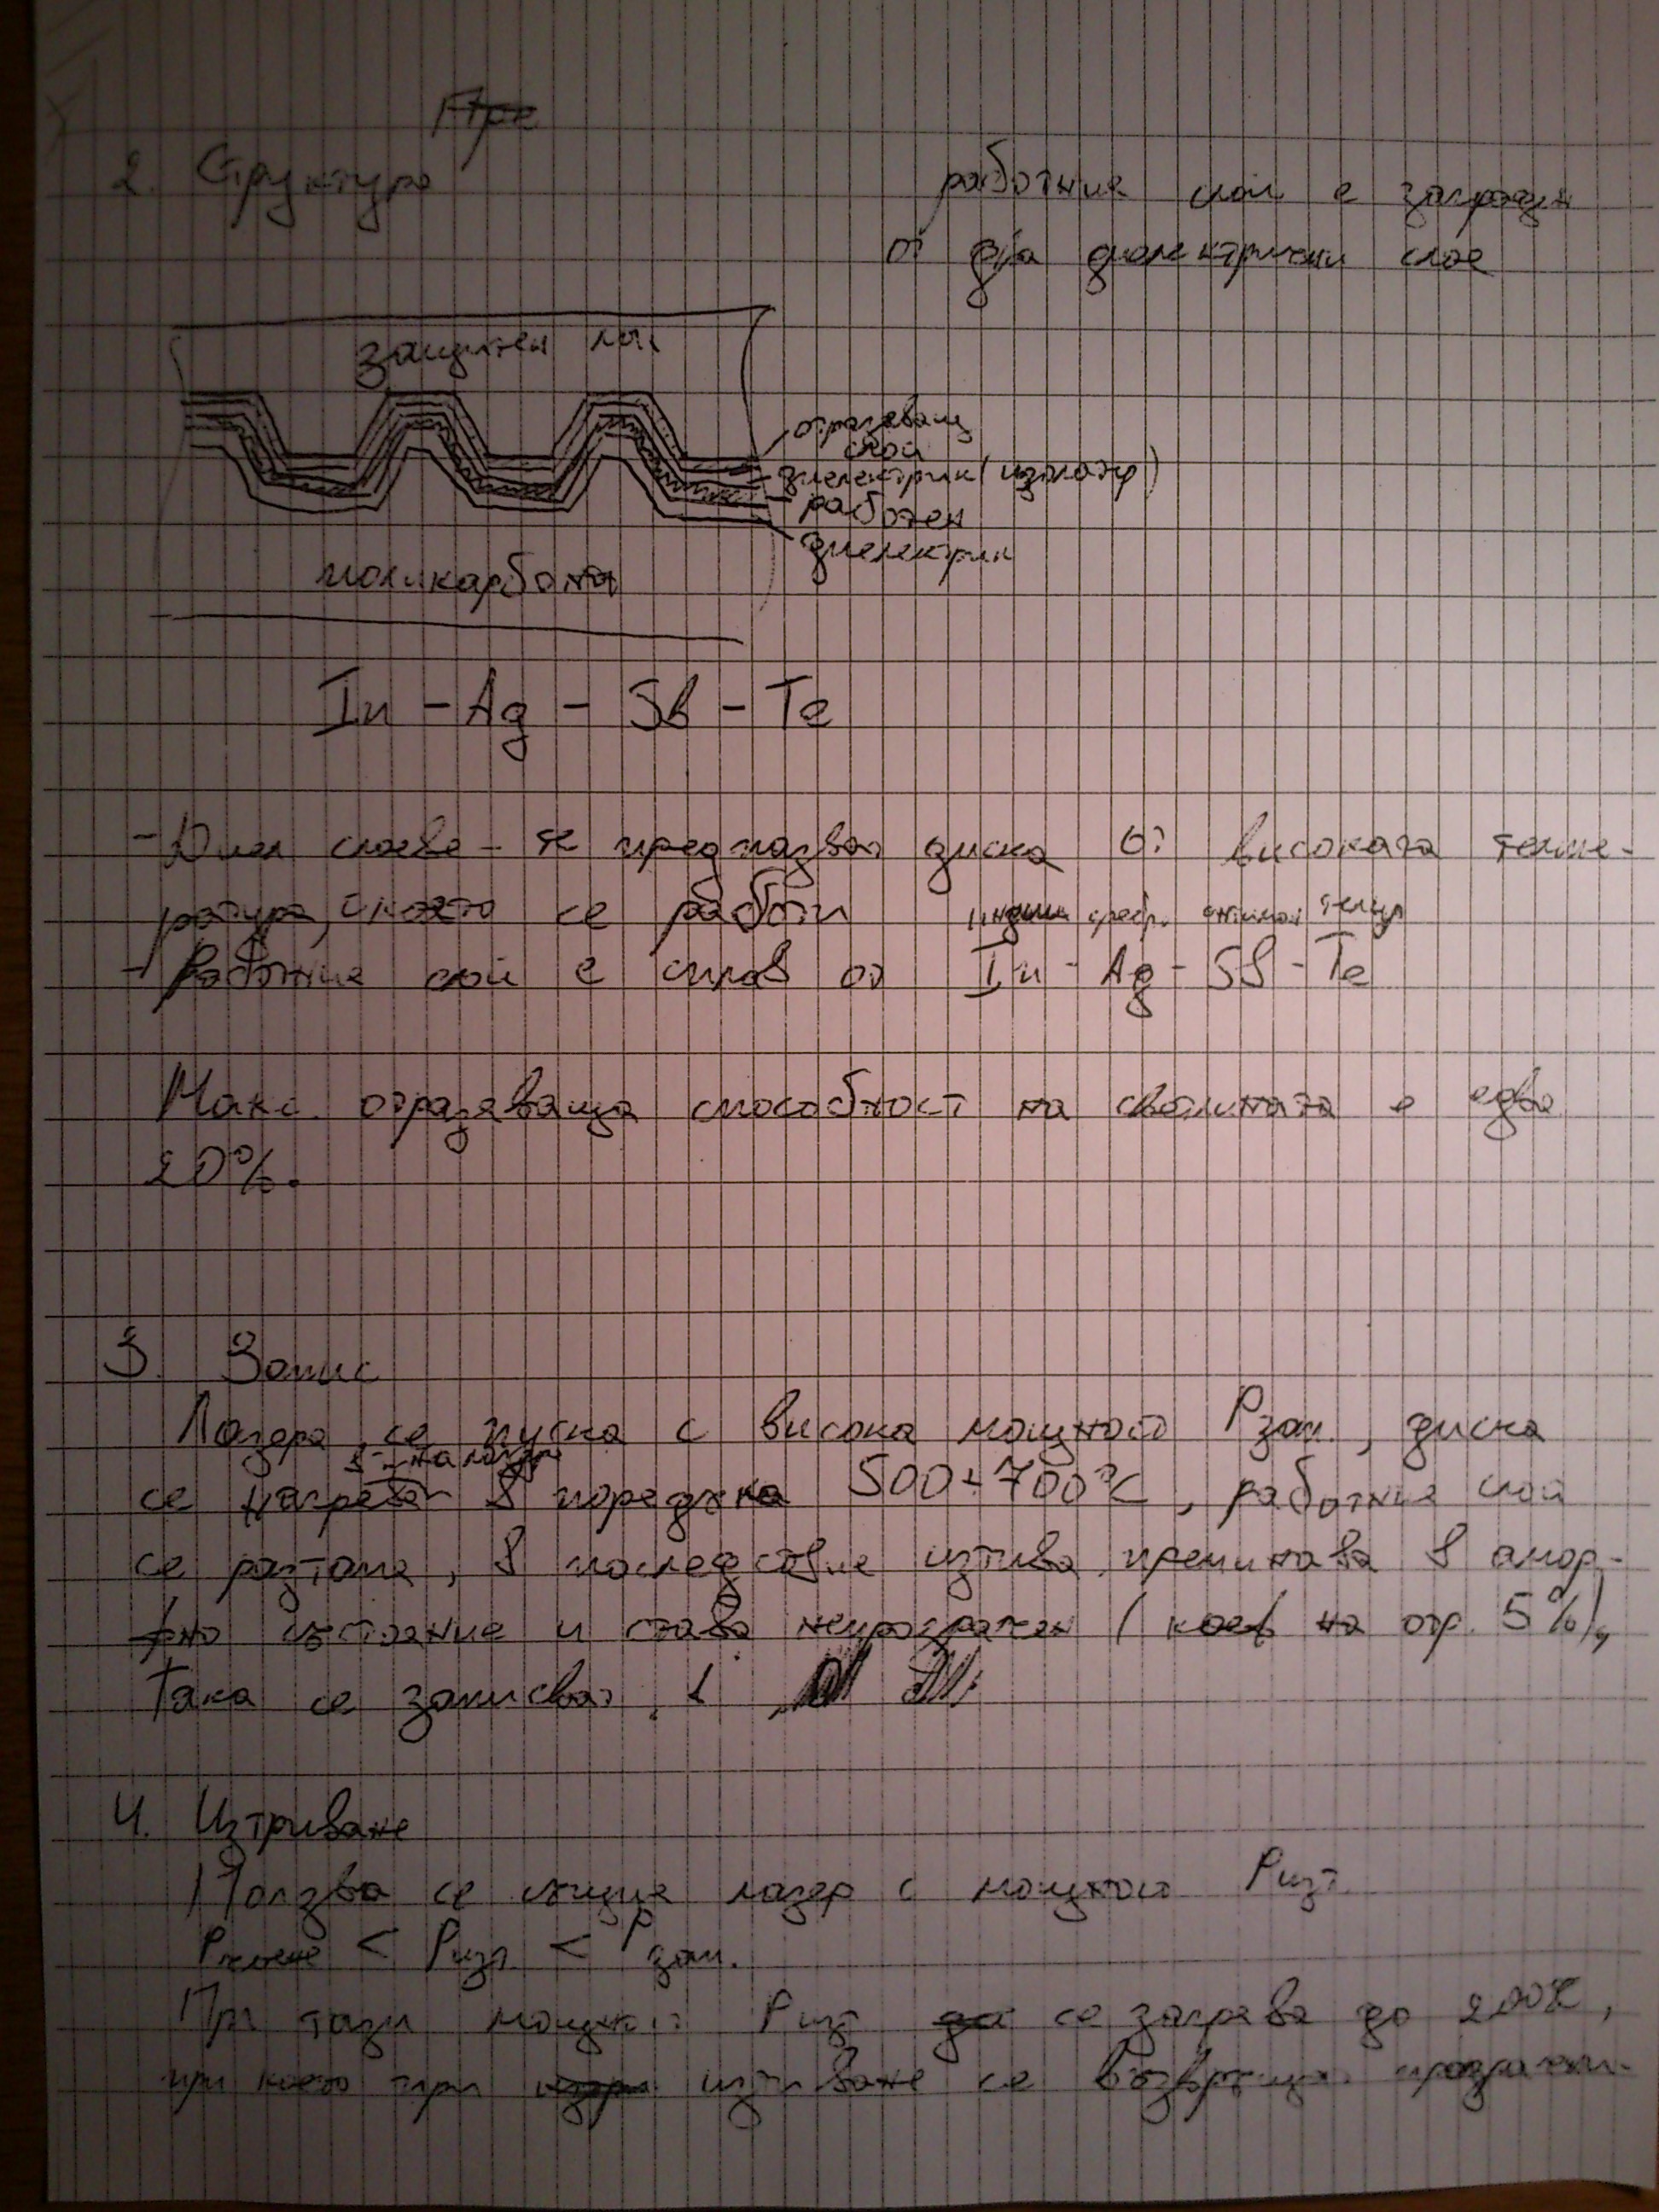 2. Структура
работния слой е заграден
от два диелектрични слоя
защитен слой
отразяващ
слой
диелектрик (изолатор)
работен
диелектрик
поликарбонат
In - Ag - Sb - Te
- Диел слоеве - те предпазват диска от високата темпе-
ратура, с която се работи
индий сребр. антимон телур
- Работния слой е сплав от In - Ag - Sb - Te
Макс. отразяваща способност на светлината е едва
20%.
3. Запис
Лазера се пуска с висока мощност Pзап., диска
се нагрява в порядъка 500÷700°C, работния слой
се разтапя, в последствие изтива, преминава в амор-
фно състояние и става непрозрачен (коеф на отр. 5%),
Така се записват 1
4. Изтриване
Ползва се същия лазер с мощност Pизт
Pчетене < Pизт. < Pзап.
При тази мощност Pизт се загрява до 200°C,
при което при изтиване се възвръща прозрачн-